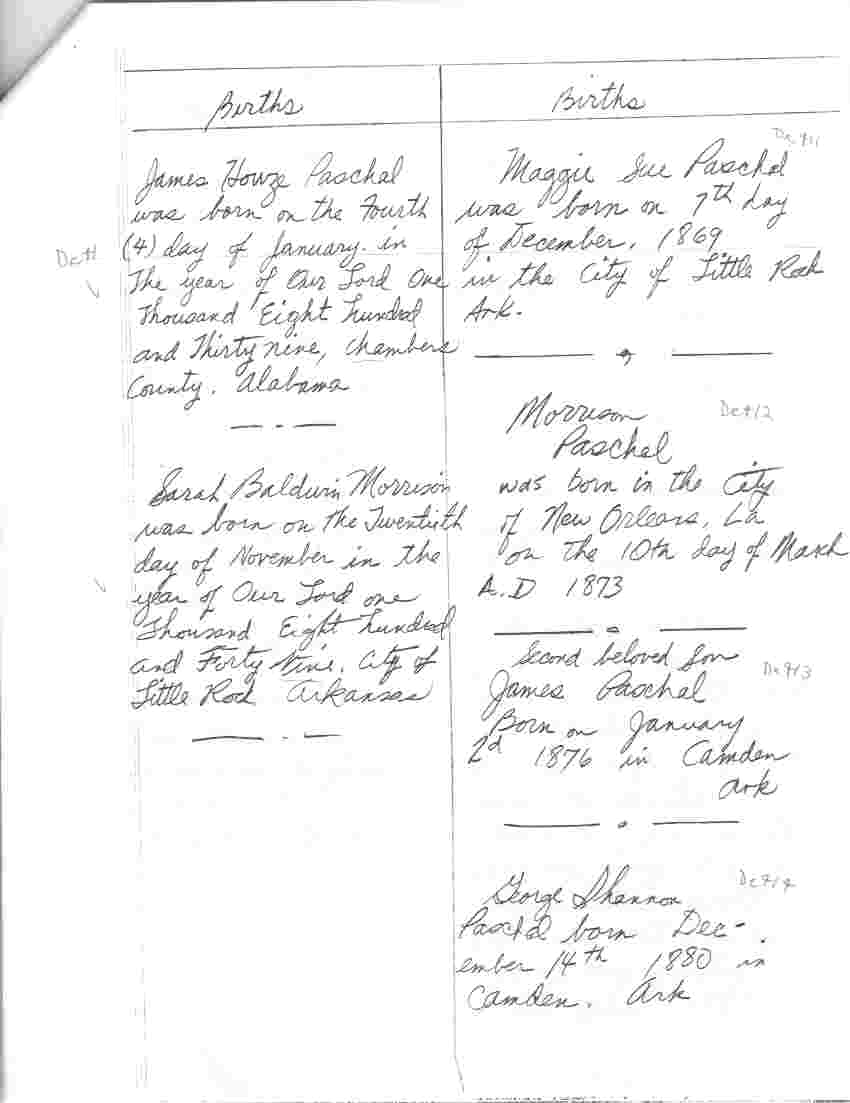 Births
James Howze Paschal
was born on the Fourth
(4) day of January. in
The year of Our Lord One
Thousand Eight hundred
and Thirty nine, Chambers
County. Alabama
Sarah Baldwin Morrison
was born on the Twentieth
day of November in the
year of Our Lord one
Thousand Eight hundred
and Forty Nine. City of
Little Rock Arkansas
Births
Maggie Sue Paschal
was born on 7th day
of December, 1869
in the City of Little Rock
Ark.
Morrison
Paschal
was born in the City
of New Orleans, La
on the 10th day of March
A.D 1873
Second beloved Son
James Paschal
Born on January
2d 1876 in Camden
Ark
George Shannon
Paschal born Dec-
ember 14th 1880 in
Camden. Ark